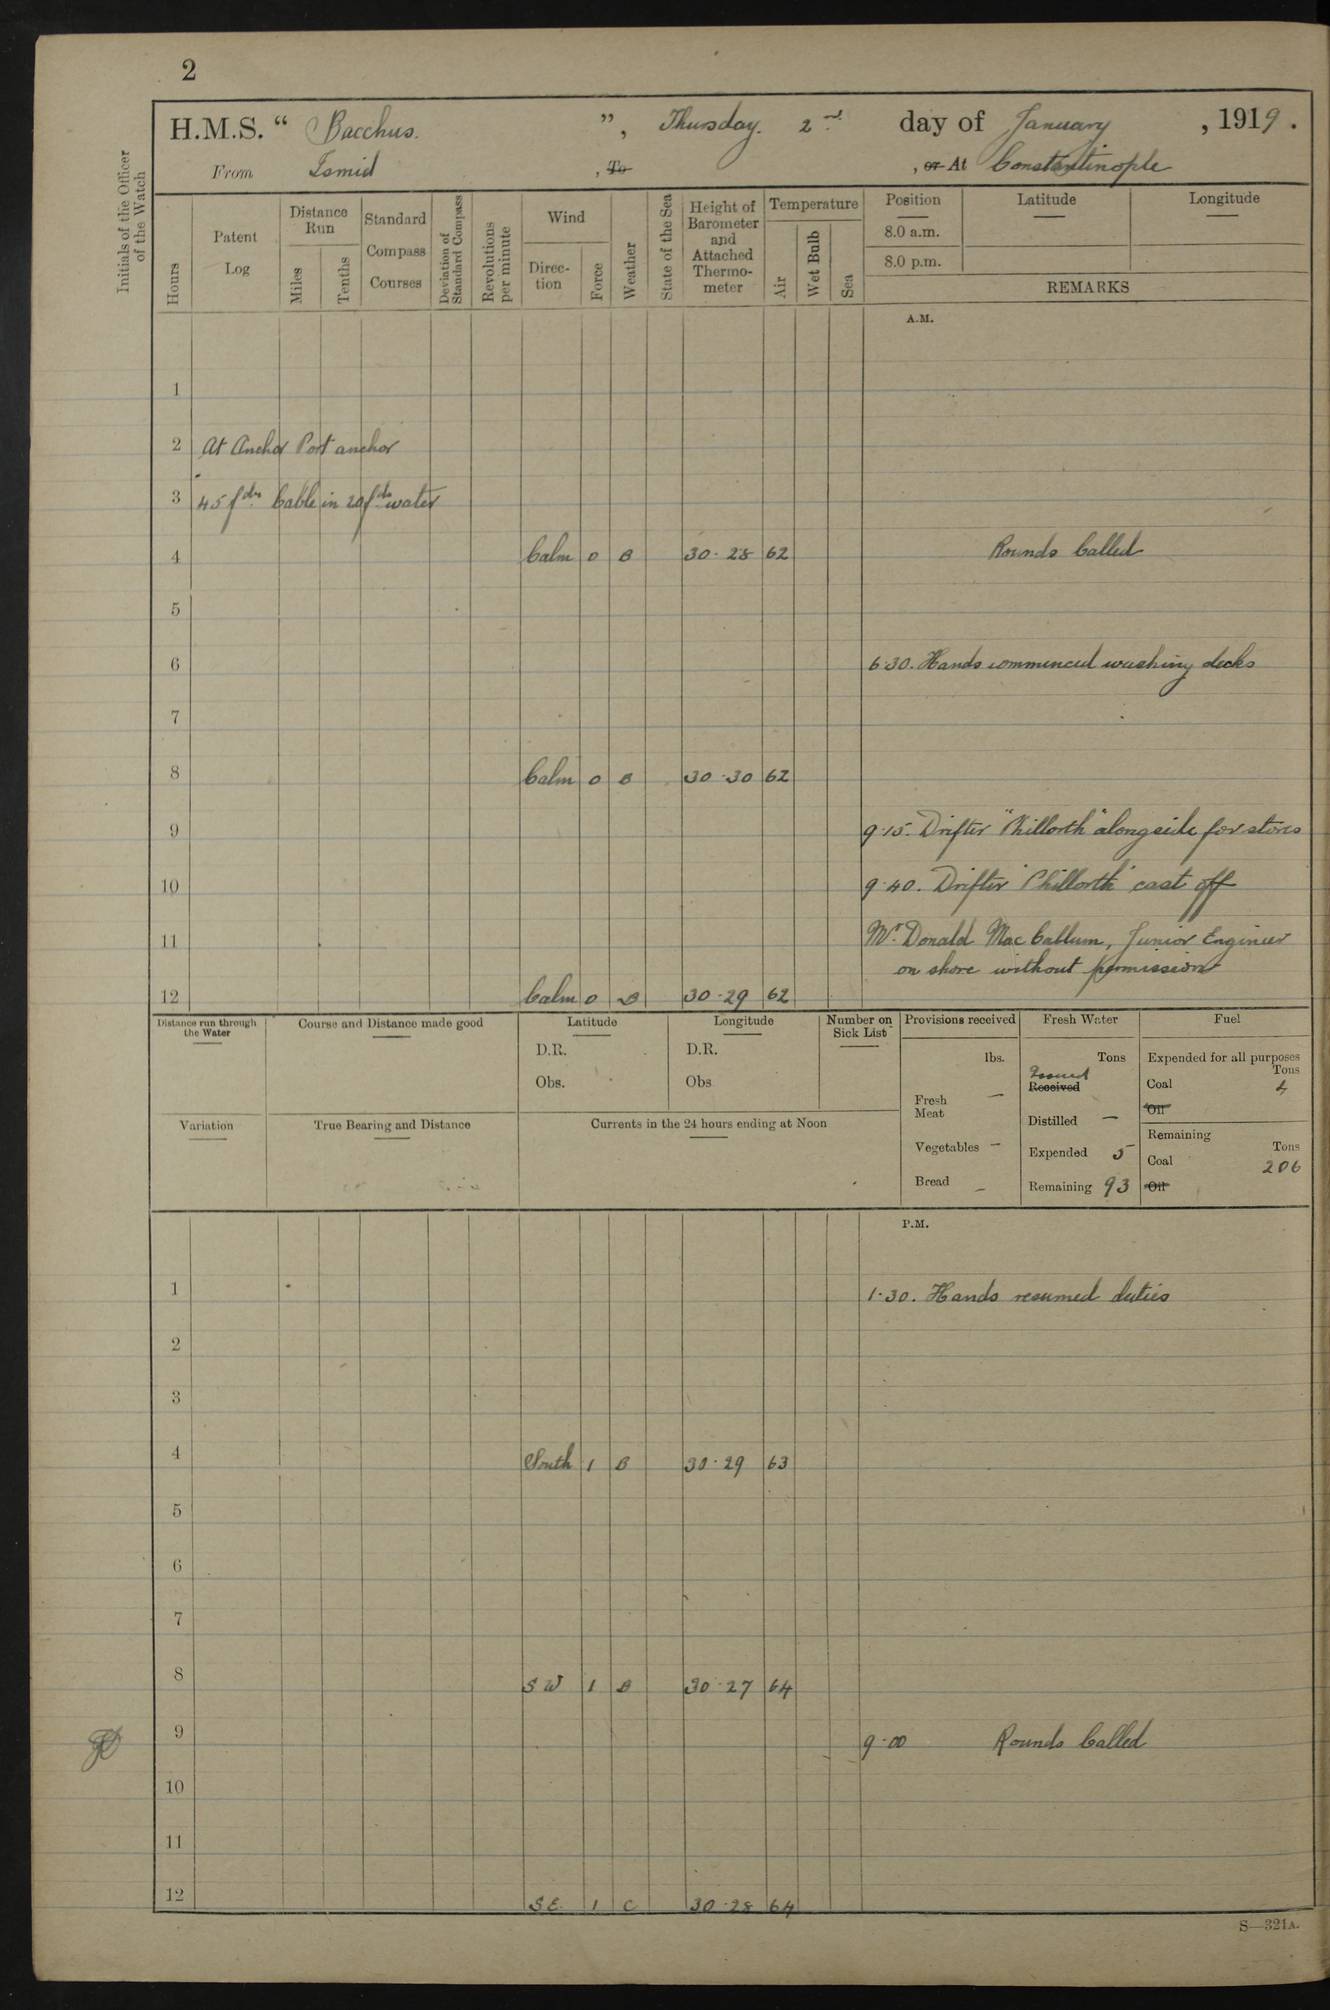 2
H.M.S. “ Bacchus. ”, Thursday. 2nd day of January, 1919.
From Ismid, To , or At Constantinople
Initials of the Officer of the Watch
Hours
Patent Log
Distance Run
Miles
Tenths
Standard Compass Courses
Deviation of Standard Compass
Revolutions per minute
Wind
Direction
Force
Weather
State of the Sea
Height of Barometer and Attached Thermometer
Temperature
Air
Wet Bulb
Sea
Position
Latitude
Longitude
8.0 a.m.
8.0 p.m.
REMARKS
A.M.
1
2 At Anchor Port anchor
3 45 fdms Cable in 20 fds water
4 Calm 0 B 30·28 62 Rounds Called
5
6 6·30. Hands commenced washing decks
7
8 Calm 0 B 30·30 62
9 9·15. Drifter "Philorth" alongside for stores
10 9·40. Drifter "Philorth" cast off
11 Mr. Donald MacCallum, Junior Engineer
on shore without permission
12 Calm 0 B 30·29 62
Distance run through the Water
Course and Distance made good
Latitude
D.R.
Obs.
Longitude
D.R.
Obs
Number on Sick List
Provisions received
lbs.
Fresh Meat —
Vegetables —
Bread —
Fresh Water
Tons
Issued
Received
Distilled —
Expended 5
Remaining 93
Fuel
Expended for all purposes
Tons
Coal 4
Oil
Remaining
Tons
Coal 206
Oil
Variation
True Bearing and Distance
Currents in the 24 hours ending at Noon
P.M.
1 1·30. Hands resumed duties
2
3
4 South 1 B 30·29 63
5
6
7
8 SW 1 B 30·27 64
9 9·00 Rounds Called
10
11
12 SE. 1 C 30·28 64
S—321A.